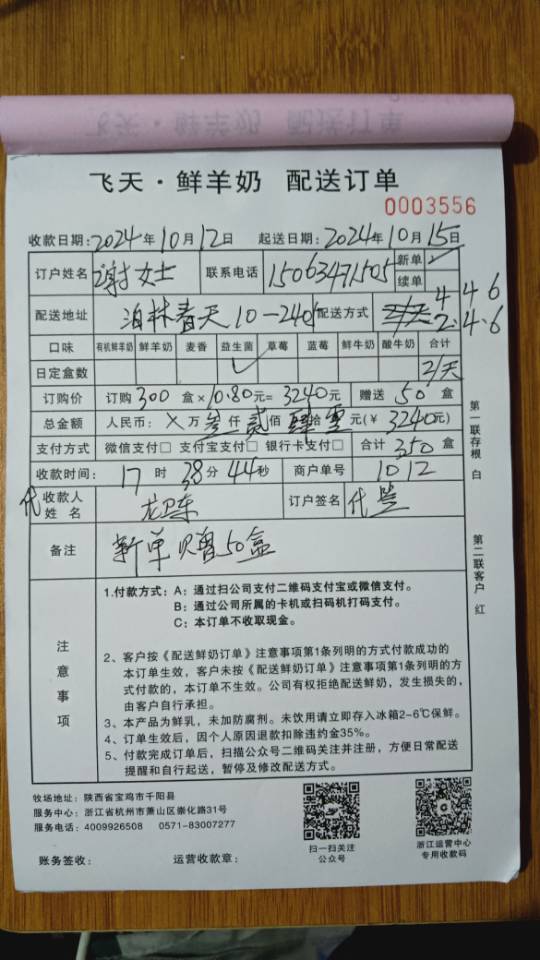 飞天·鲜羊奶 配送订单
0003556
收款日期：2024年10月12日 起送日期：2024年10月15日
订户姓名 谢女士 联系电话 15063471505 新单 ✓
续单
配送地址 泊林春天10-2401 配送方式 4 4 6
2·4·6
口味 有机鲜羊奶 鲜羊奶 麦香 益生菌 草莓 蓝莓 鲜牛奶 酸牛奶 合计
日定盒数 ✓ 2/天
订购价 订购300盒×10.80元=3240元 赠送50盒
总金额 人民币：×万叁仟贰佰肆拾零元(￥3240元)
支付方式 微信支付□ 支付宝支付□ 银行卡支付□ 合计350盒
收款时间：17时38分44秒 商户单号 1012
代 收款人 订户签名 代签
姓名
备注 新单赠50盒
注意事项
1.付款方式：A：通过扫公司支付二维码支付宝或微信支付。
B：通过公司所属的卡机或扫码机打码支付。
C：本订单不收取现金。
2、客户按《配送鲜奶订单》注意事项第1条列明的方式付款成功的
本订单生效，客户未按《配送鲜奶订单》注意事项第1条列明的方
式付款的，本订单不生效。公司有权拒绝配送鲜奶，发生损失的，
由客户自行承担。
3、本产品为鲜乳，未加防腐剂。未饮用请立即存入冰箱2-6℃保鲜。
4、订单生效后，因个人原因退款扣除违约金35%。
5、付款完成订单后，扫描公众号二维码关注并注册，方便日常配送
提醒和自行起送，暂停及修改配送方式。
第一联存根 白
第二联客户 红
牧场地址：陕西省宝鸡市千阳县
服务中心：浙江省杭州市萧山区崇化路31号
服务电话：4009926508 0571-83007277
扫一扫关注
公众号
浙江运营中心
专用收款码
账务签收： 运营收款章：